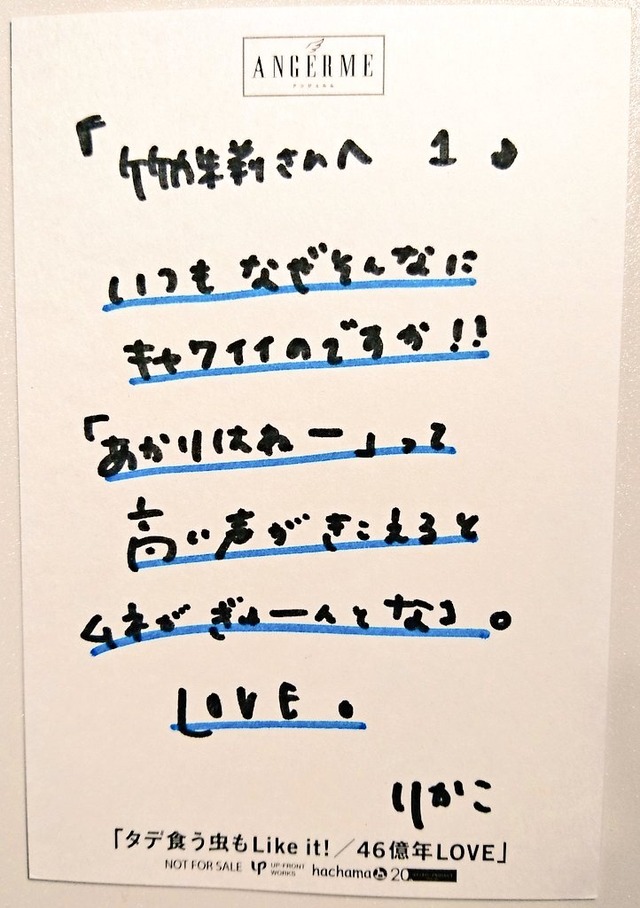 ANGERME
アンジュルム
「竹内朱莉さんへ 1
いつもなぜそんなに
キャワイイのですか!!
「あかりはねー」って
高い声がきこえると
ムネがぎゅーんとなる。
LOVE。
りかこ
「タデ食う虫もLike it!/46億年LOVE」
NOT FOR SALE UP UP-FRONT WORKS hachama 20